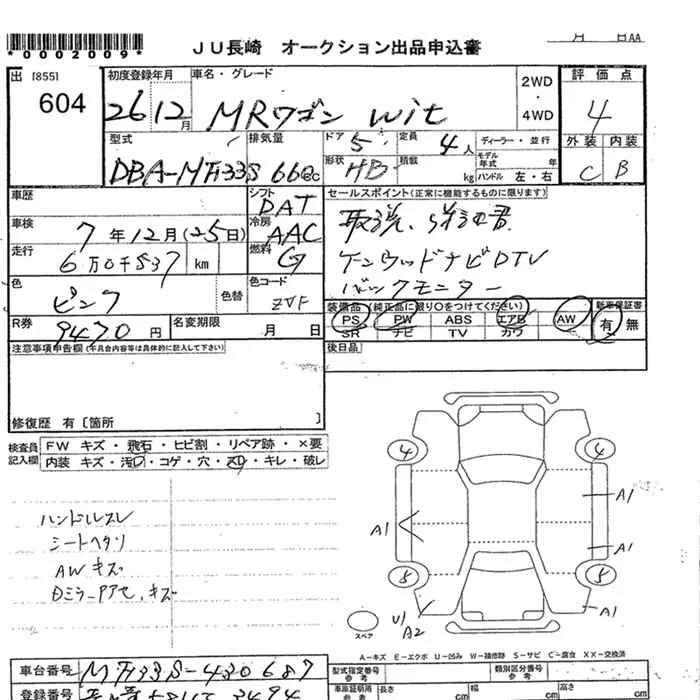 *0002009*
JU長崎 オークション出品申込書
月 日AA
出 [855]
604
初度登録年月
26 12月
車名・グレード
MRワゴン wit
2WD
・
4WD
評価点
4
外装 内装
C B
型式
DBA-MF33S
排気量
660cc
ドア
5
定員
4人
ディーラー・並行
形状
HB
積載
kg
モデル年式 年
ハンドル 左・右
車歴
シフト
DAT
セールスポイント(正常に機能するものに限ります)
取説、
ケンウッドナビDTV
バックモニター
車検
7年12月(25日)
冷房
AAC
走行
6万0千537 km
燃料
G
色
ピンク
色替
色コード
ZVF
装備品(純正品に限り○をつけてください)
PS PW ABS エアB AW
SR ナビ TV カワ
新車保証書
有 無
R券
9470円
名変期限
月 日
注意事項申告欄(不具合内容等は具体的に記入して下さい)
後日品
修復歴 有〔箇所 〕
検査員記入欄
FW キズ・飛石・ヒビ割・リペア跡・×要
内装 キズ・汚・コゲ・穴・スレ・キレ・破レ
ハンドルスレ
シートヘタリ
AWキズ
Dミラー キズ
4 4
A1
A1
A1
5 5
U1
A2
A1
スペア
A-キズ E-エクボ U-凹み W-補修跡 S-サビ C-腐食 XX-交換済
車台番号
MF33S-430687
型式指定番号
参考
類別区分番号
参考
登録番号
車庫証明用
参考
長さ cm
幅 cm
高さ cm